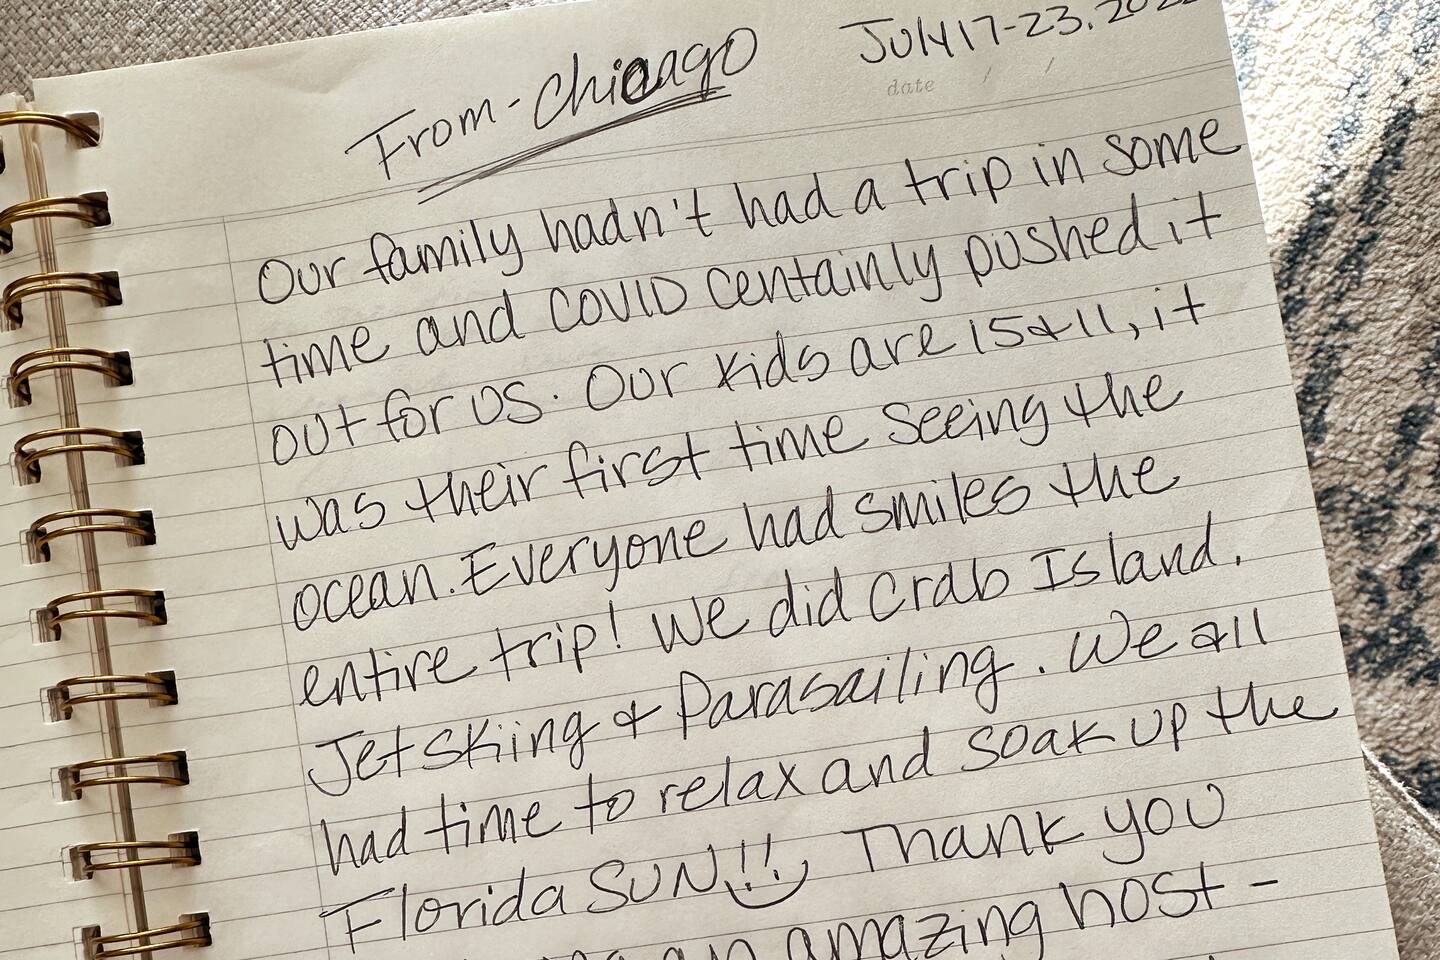 From - Chicago
July 17-23, 202
date / /
Our family hadn't had a trip in some
time and COVID centainly pushed it
out for us. Our kids are 15 & 11, it
was their first time seeing the
ocean. Everyone had smiles the
entire trip! We did Crab Island,
Jet skiing & Parasailing. We all
had time to relax and soak up the
Florida SUN!! Thank you
an amazing host -